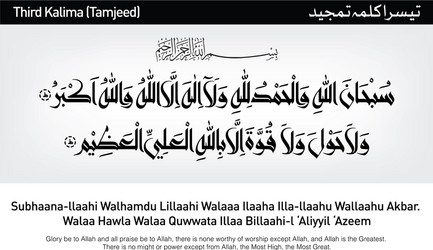 Third Kalima (Tamjeed)
تیسرا کلمہ تمجید
بسم الله الرحمن الرحيم
سُبْحَانَ اللهِ وَالْحَمْدُ لِلّهِ وَلَآ اِلٰهَ اِلَّا اللهُ وَاللهُ اَكْبَرُ
وَلَا حَوْلَ وَلَا قُوَّةَ اِلَّا بِاللهِ الْعَلِيِّ الْعَظِيْمِ
Subhaana-llaahi Walhamdu Lillaahi Walaaa Ilaaha Illa-llaahu Wallaahu Akbar.
Walaa Hawla Walaa Quwwata Illaa Billaahi-l ‘Aliyyil ‘Azeem
Glory be to Allah and all praise be to Allah, there is none worthy of worship except Allah, and Allah is the Greatest.
There is no might or power except from Allah, the Most High, the Most Great.